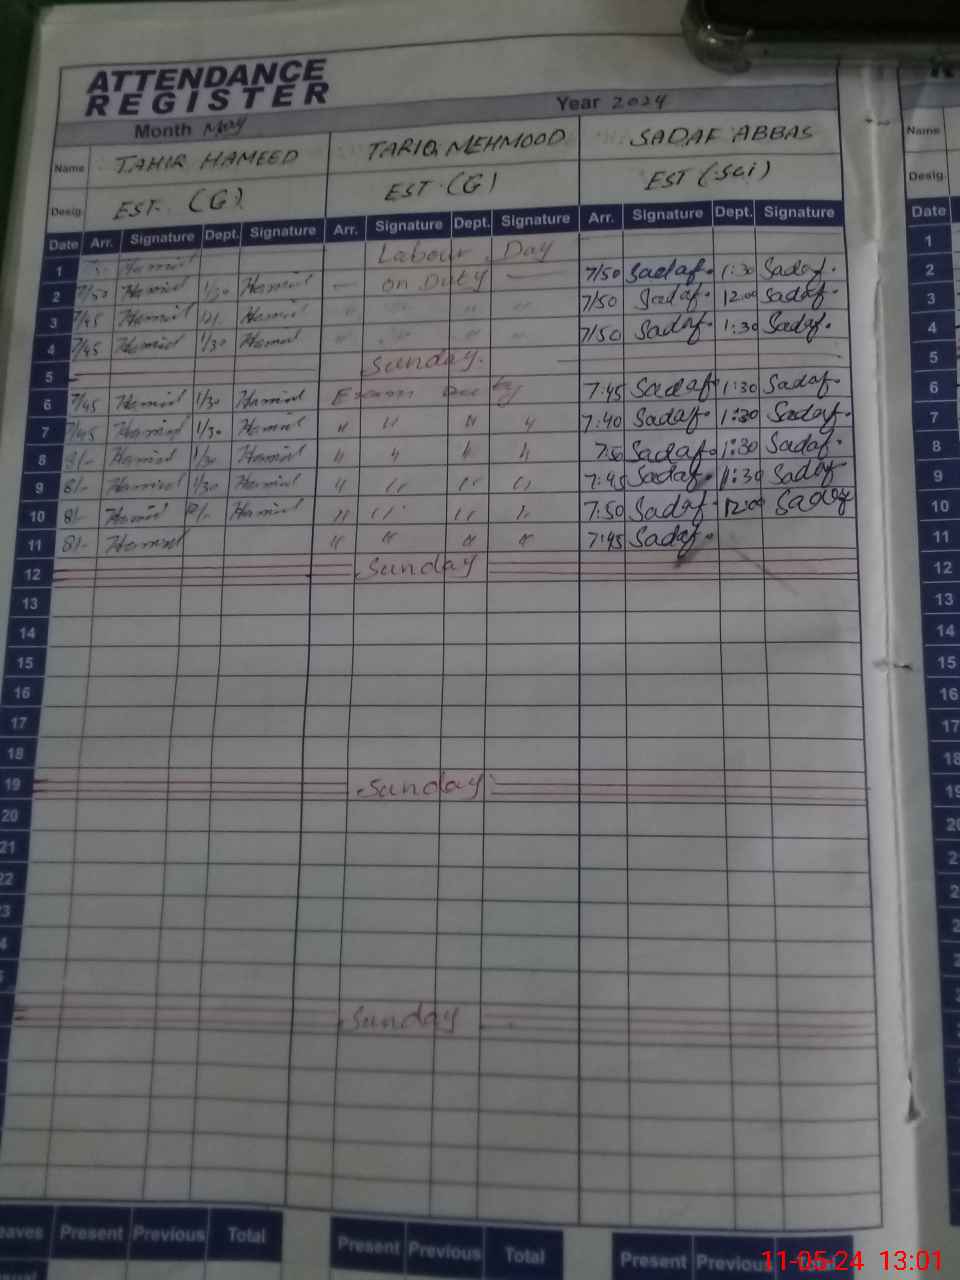 ATTENDANCE
REGISTER
Month May Year 2024
Name TAHIR HAMEED TARIQ MEHMOOD SADAF ABBAS Name
Desig. EST. (G) EST (G) EST (Sci) Desig.
Date Arr. Signature Dept. Signature Arr. Signature Dept. Signature Arr. Signature Dept. Signature Date
1 Labour Day 1
2 7/50 Hamid 1/30 Hamid on Duty 7/50 Sadaf. 1:30 Sadaf. 2
3 7/45 Hamid 12/- Hamid " " " " 7/50 Sadaf. 12:00 Sadaf. 3
4 7/45 Hamid 1/30 Hamid " " " " 7/50 Sadaf. 1:30 Sadaf. 4
5 Sunday. 5
6 7/45 Hamid 1/30 Hamid Exam 7:45 Sadaf. 1:30 Sadaf. 6
7 7/45 Hamid 1/30 Hamid " " " " 7:40 Sadaf. 1:30 Sadaf. 7
8 8/- Hamid 1/30 Hamid " " " " 7:50 Sadaf. 1:30 Sadaf. 8
9 8/- Hamid 1/30 Hamid " " " " 7:45 Sadaf. 1:30 Sadaf 9
10 8/- Hamid 12/- Hamid " " " " 7:50 Sadaf. 12:00 Sadaf 10
11 8/- Hamid " " " " 7:45 Sadaf. 11
12 Sunday 12
13 13
14 14
15 15
16 16
17 17
18 18
19 Sunday 19
20 20
21
22
Sunday
Present Previous Total Present Previous Total Present Previous Total
11-05-24 13:01